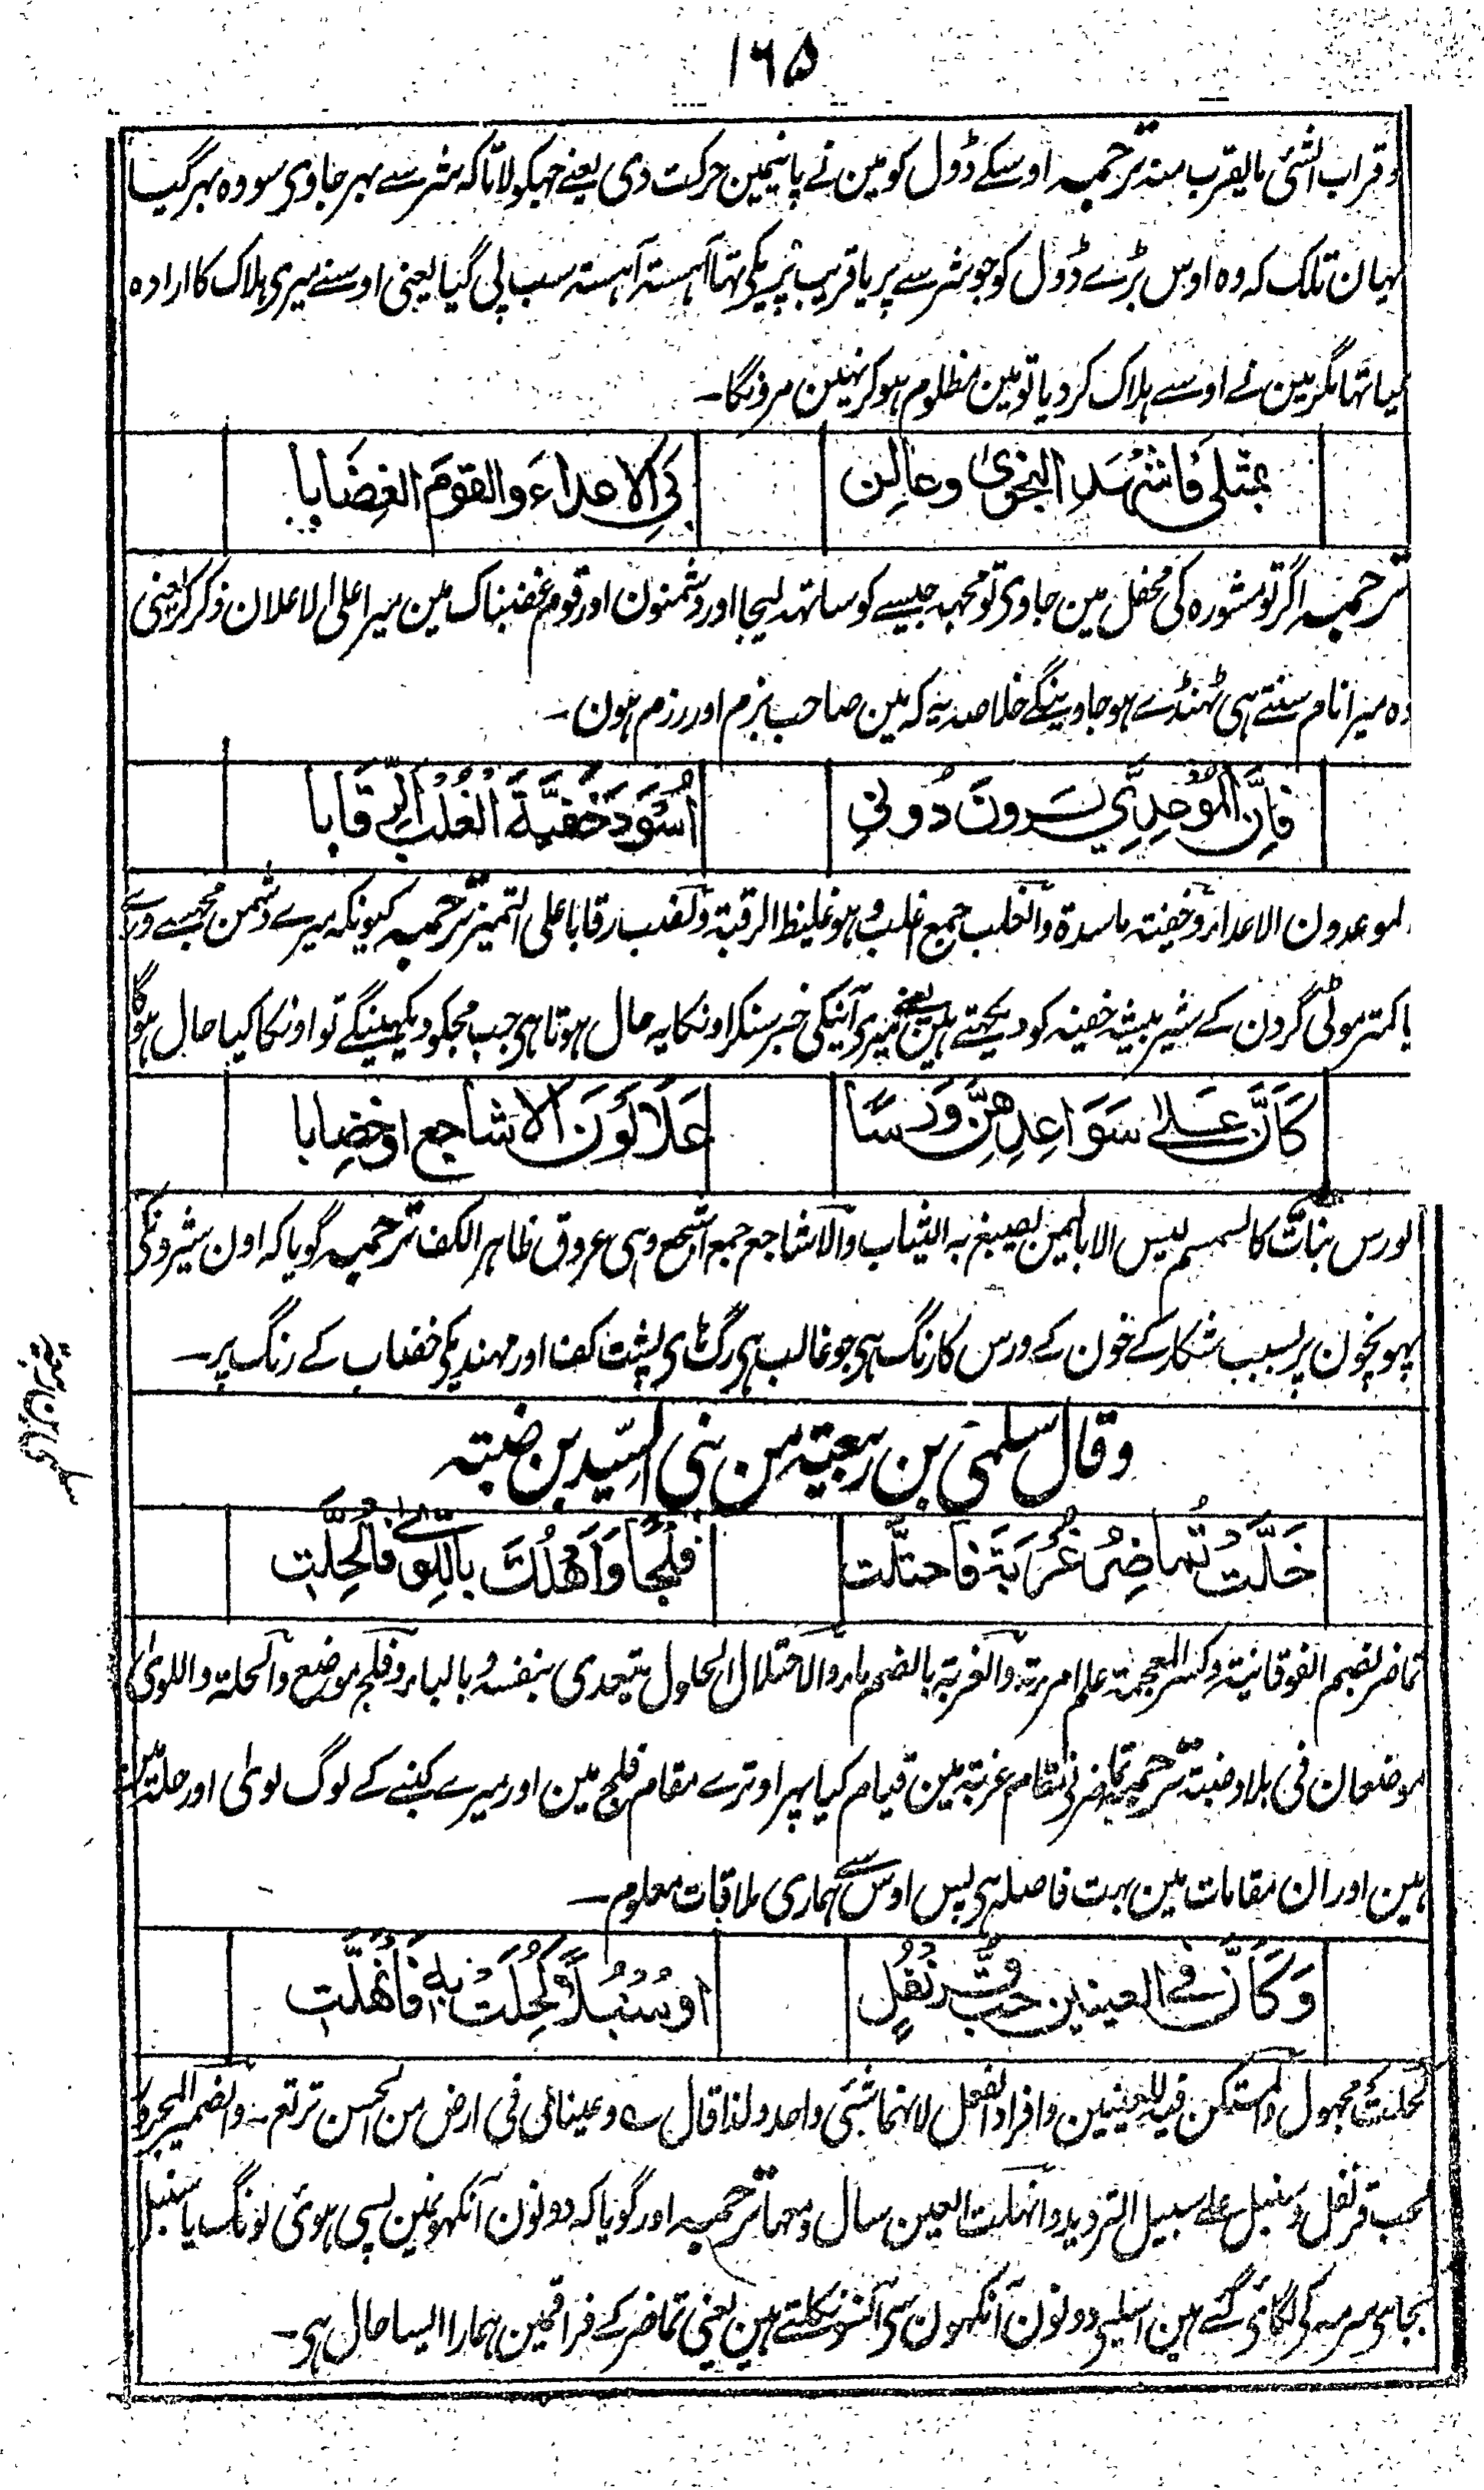 ۱۶۵
وقراب الشئی مایقرب منہ ترجمہ اوسکے ڈول کو مین نے پانیمین حرکت دی یعنے جھکولا تاکہ شر سے بہر جاوی سو وہ بہر گیا
یہان تلک کہ وہ اوس بڑے ڈول کو جو شر سے پر یا قریب پریکی تہا آہستہ آہستہ سب پی گیا یعنی اوسنے میری ہلاک کا ارادہ
کیا تہا مگر مین نے اوسے ہلاک کر دیا تو مین مظلوم ہو کر نہین مرونگا۔
بمثلی فاشہد النجوی وعالن
بی الاعداءَ والقومَ الغِضَابا
ترجمہ اگر تو مشورہ کی محفل مین جاوی تو مجہہ جیسے کو ساتہہ لیجا اور دشمنون اور قوم غضبناک مین میرا علی الاعلان ذکر کر یعنی
وہ میرا نام سنتے ہی ٹہنڈے ہو جاوینگے خلاصہ یہ کہ مین صاحب بزم اور رزم ہون۔
فَاِنَّ الموُعِدِیَّ یَرَونَ دُونِی
اُسُوَدَ خَفِیَّةَ الغُلْبَ الرِّقَابا
الموعدون الاعداء وخفیتہ ماسدة والغلب جمع اغلب وہو غلیظ الرقبة ونصب رقابا علی التمیز ترجمہ کیونکہ میرے دشمن مجہسے ورے
یا کمتر موٹی گردن کے شیر بیشہ خفیہ کو دیکہتے ہین یعنے میری آنیکی خبر سنکر اونکا یہ حال ہوتا ہی جب مجکو دیکہینگے تو اونکا کیا حال ہوگا
كَاَنَّ عَلیٰ سَوَاعِدِهِنَّ وَرْسًا
عَلَا لَوْنَ الاشاجعِ اوخِضابا
الورس نبات کالسمسم لیس الا بالیمن یصبغ بہ الثیاب والاشاجع جمع اشجع وہی عروق ظاہر الکف ترجمہ گویا کہ اون شیرونکی
پہونچون پر بسبب شکار کے خون کے ورس کا رنگ ہی جو غالب ہی رگہای پشت کف اور مہندیکی خضاب کے رنگ پر۔
وقال سلمی بن ربیعتہ من بنی السید بن ضبتہ
سلمی ابن ربیعتہ
حَلَّتْ تُماضِرُ غُرْبَةً فاحتلَّت
فَلْجًا وَاَهْلُكَ بِاللِّوٰی فَالْحِلَّتِ
تماضر بضم الفوقانیتہ وکسر المعجمة علم امرءة والغربة بالضم ماء والاحتلال الحلول یتعدی بنفسہ وبالباء وفلج موضع والحلة واللویٰ
موضعان فی بلاد ضبتہ ترجمہ تماضر نی مقام غربة مین قیام کیا پہر اوترے مقام فلج مین اور میرے کنبے کے لوگ لویٰ اور حلة مین
ہین اور ان مقامات مین بہت فاصلہ ہی پس اوس سے ہماری ملاقات معلوم۔
وَكَاَنَّ فی العینین حَبَّ قَرَنْفُلٍ
اوسُنْبُلًا كُحِلَتْ بِهٖ فَانْهَلَّتِ
کحلت مجہول والمستکن فیہ للعینین وافراد الفعل لانہما شئی واحد ولذا قال ؎ وعینائی فی ارض من الحسن ترتع۔ والضمیر المجرور
لحب قرنفل وسنبل علے سبیل التردید وانہلت العین سال دمعہا ترجمہ اور گویا کہ دونون آنکہونمین پسی ہوئی لونگ یا سنبل
بجای سرمہ کی لگائی گئے ہین اسلیے دونون آنکہون سی آنسو نکلتے ہین یعنی تماضر کے فراقمین ہمارا ایسا حال ہی۔